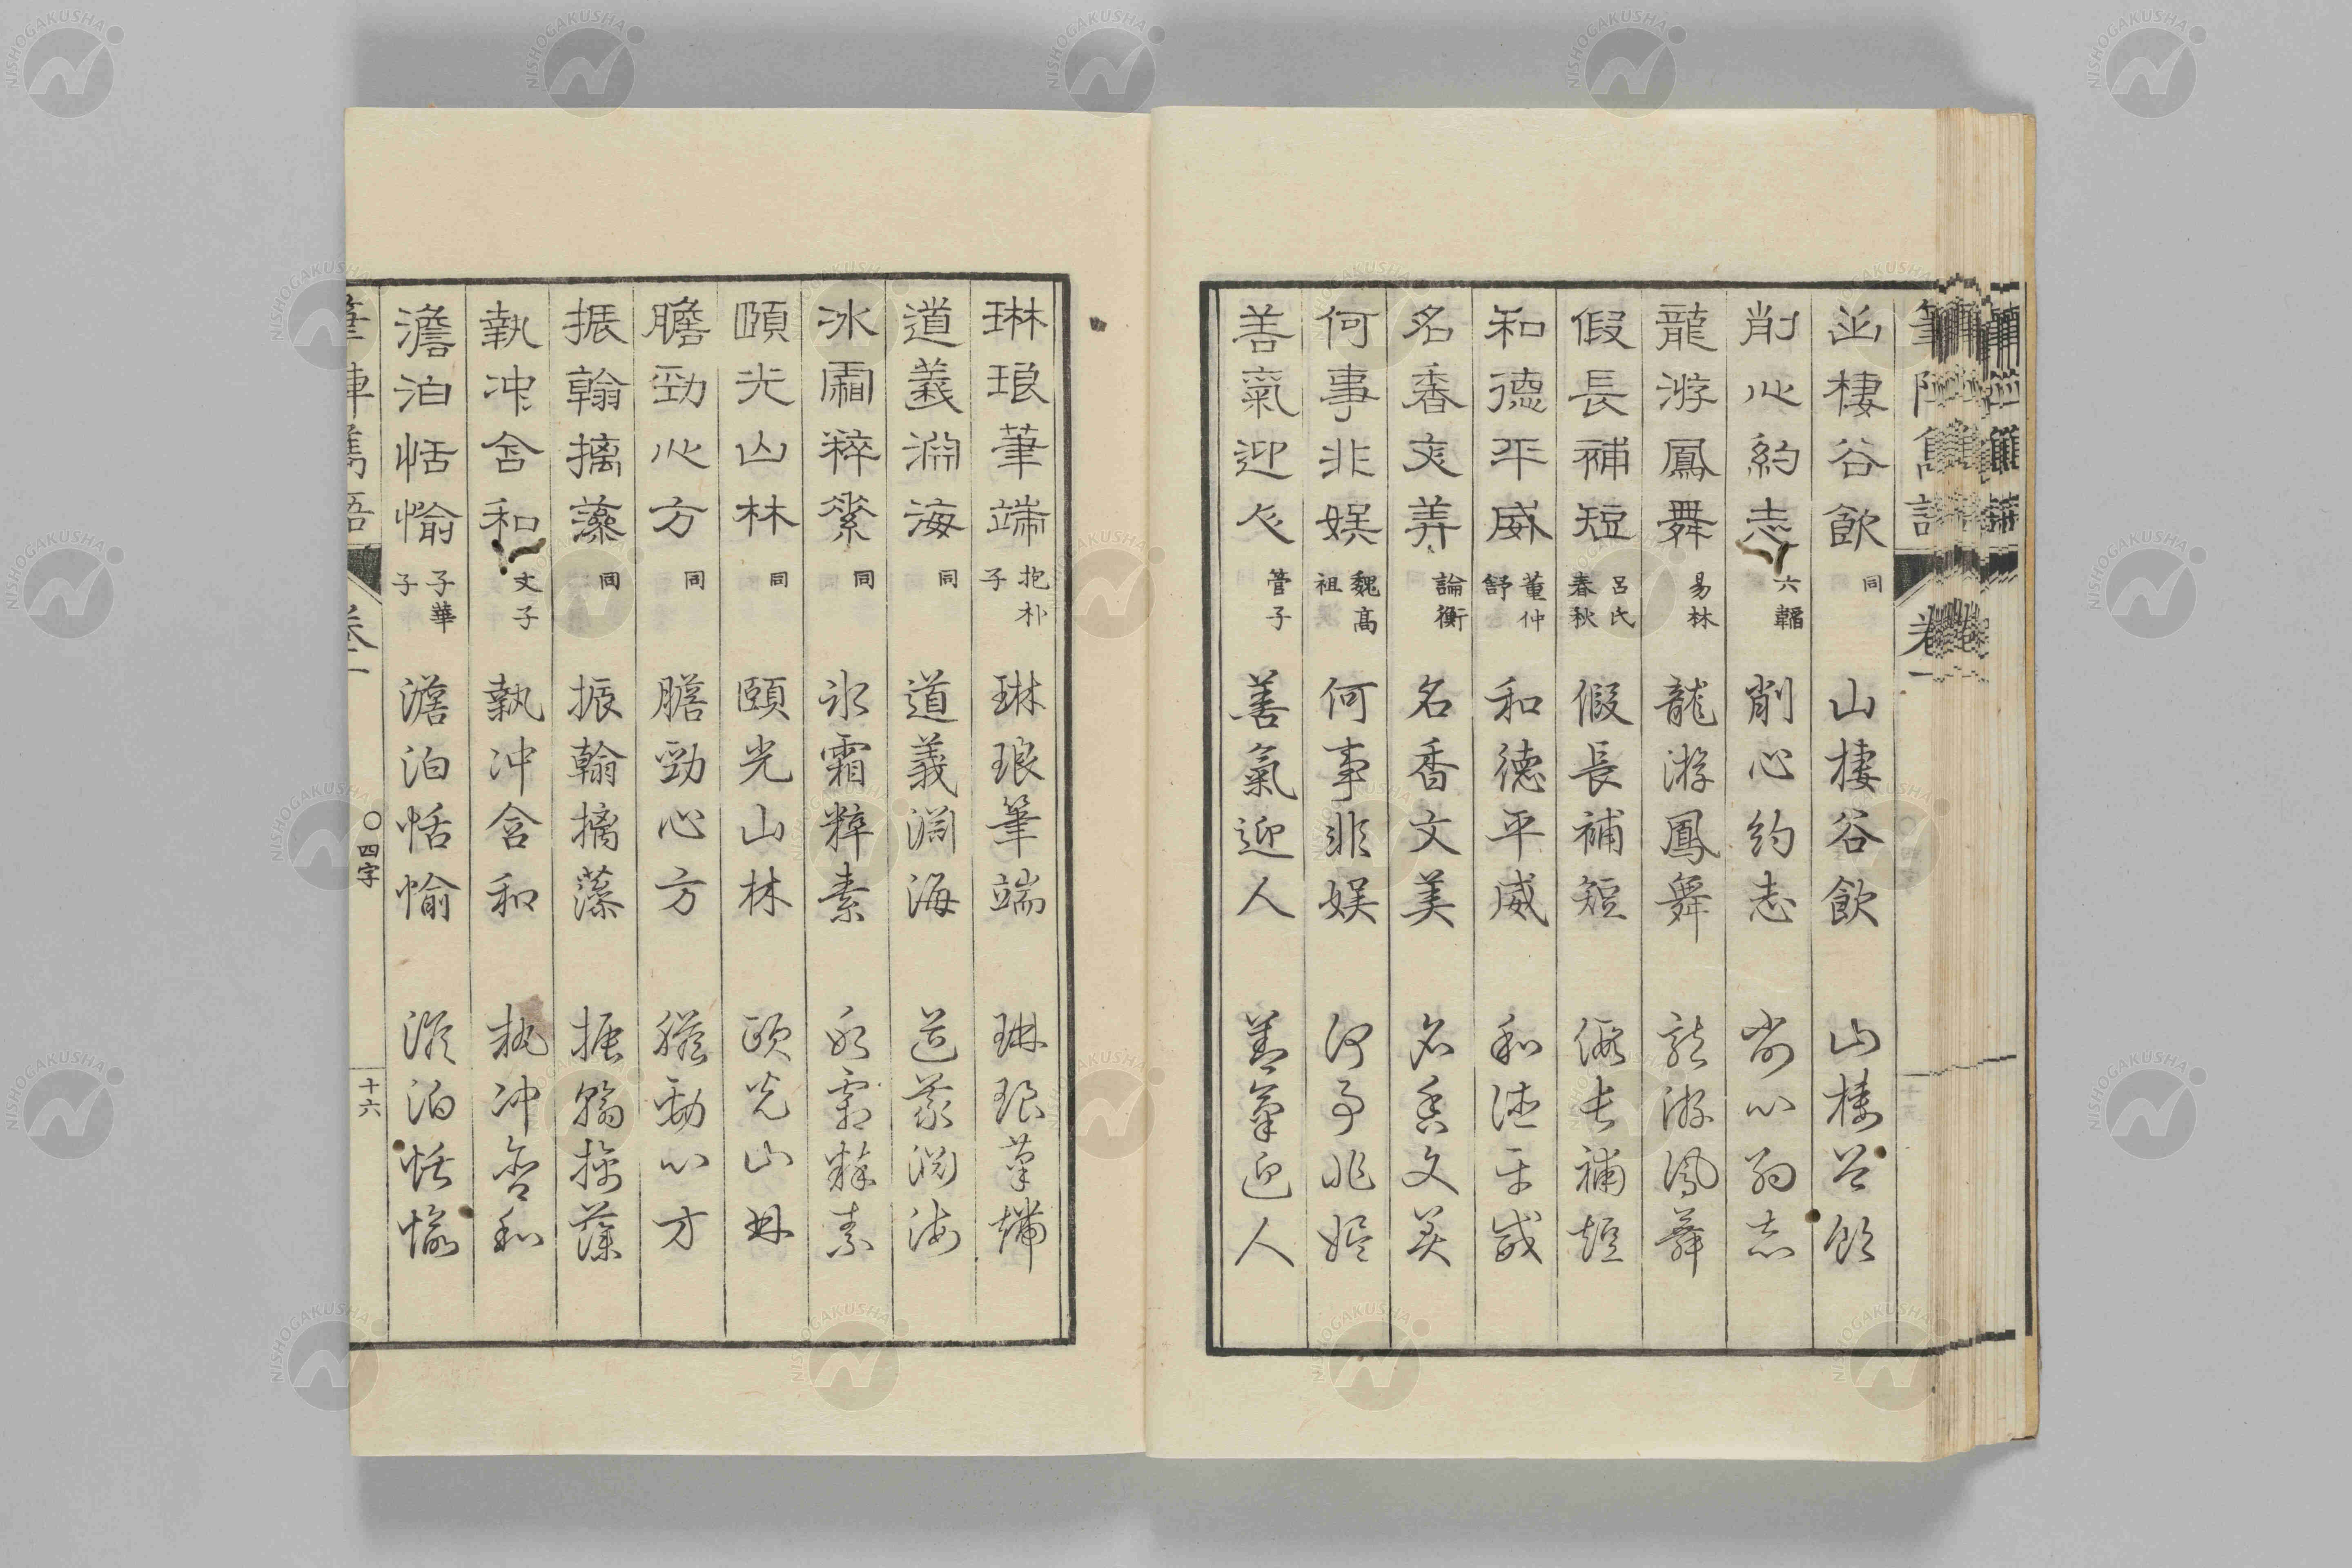 山棲谷飲 同 山棲谷飲 山棲谷飲
削心約志 六韜 削心約志 削心約志
龍游鳳舞 易林 龍游鳳舞 龍游鳳舞
假長補短 呂氏春秋 假長補短 假長補短
和德平威 董仲舒 和德平威 和德平威
名香文美 論衡 名香文美 名香文美
何事非娯 魏髙祖 何事非娯 何事非娯
善氣迎人 管子 善氣迎人 善氣迎人
琳琅筆端 抱朴子 琳琅筆端 琳琅筆端
道義淵海 同 道義淵海 道義淵海
冰霜粹素 同 冰霜粹素 冰霜粹素
頤光山林 同 頤光山林 頤光山林
膽勁心方 同 膽勁心方 膽勁心方
振翰摛藻 同 振翰摛藻 振翰摛藻
執冲含和 文子 執冲含和 執冲含和
澹泊恬愉 子華子 澹泊恬愉 澹泊恬愉
筆陣雋語 卷一 〇四字 十六